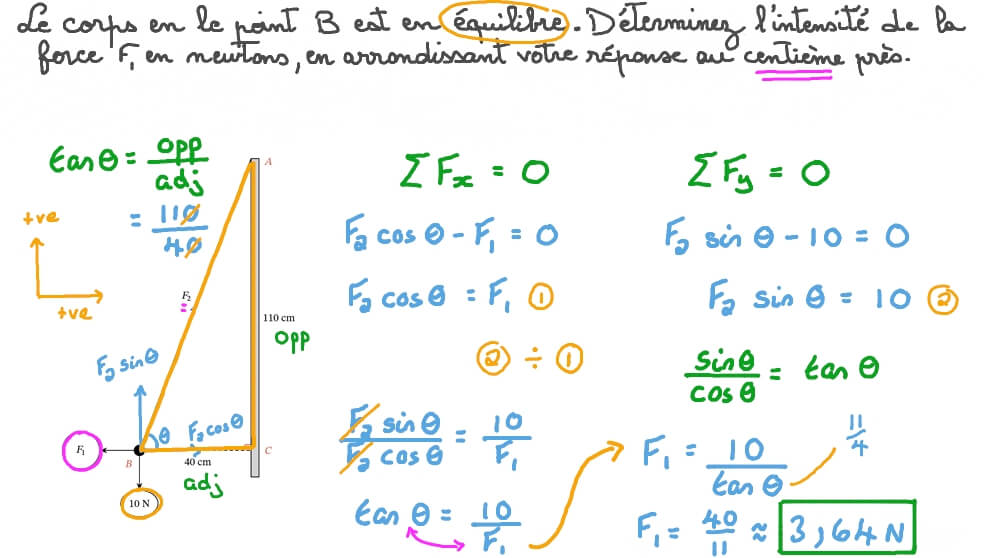 Le corps en le point B est en équilibre. Déterminez l'intensité de la
force F₁ en newtons, en arrondissant votre réponse au centième près.
tan θ = opp/adj
= 110/40
+ve
+ve
A
F₂
110 cm
opp
F₂ sin θ
θ
F₂ cos θ
F₁
B
C
40 cm
adj
10 N
ΣFₓ = 0
F₂ cos θ - F₁ = 0
F₂ cos θ = F₁ ①
② ÷ ①
F₂ sin θ / F₂ cos θ = 10/F₁
tan θ = 10/F₁
ΣFᵧ = 0
F₂ sin θ - 10 = 0
F₂ sin θ = 10 ②
sin θ / cos θ = tan θ
F₁ = 10/tan θ
11/4
F₁ = 40/11 ≈ 3,64 N